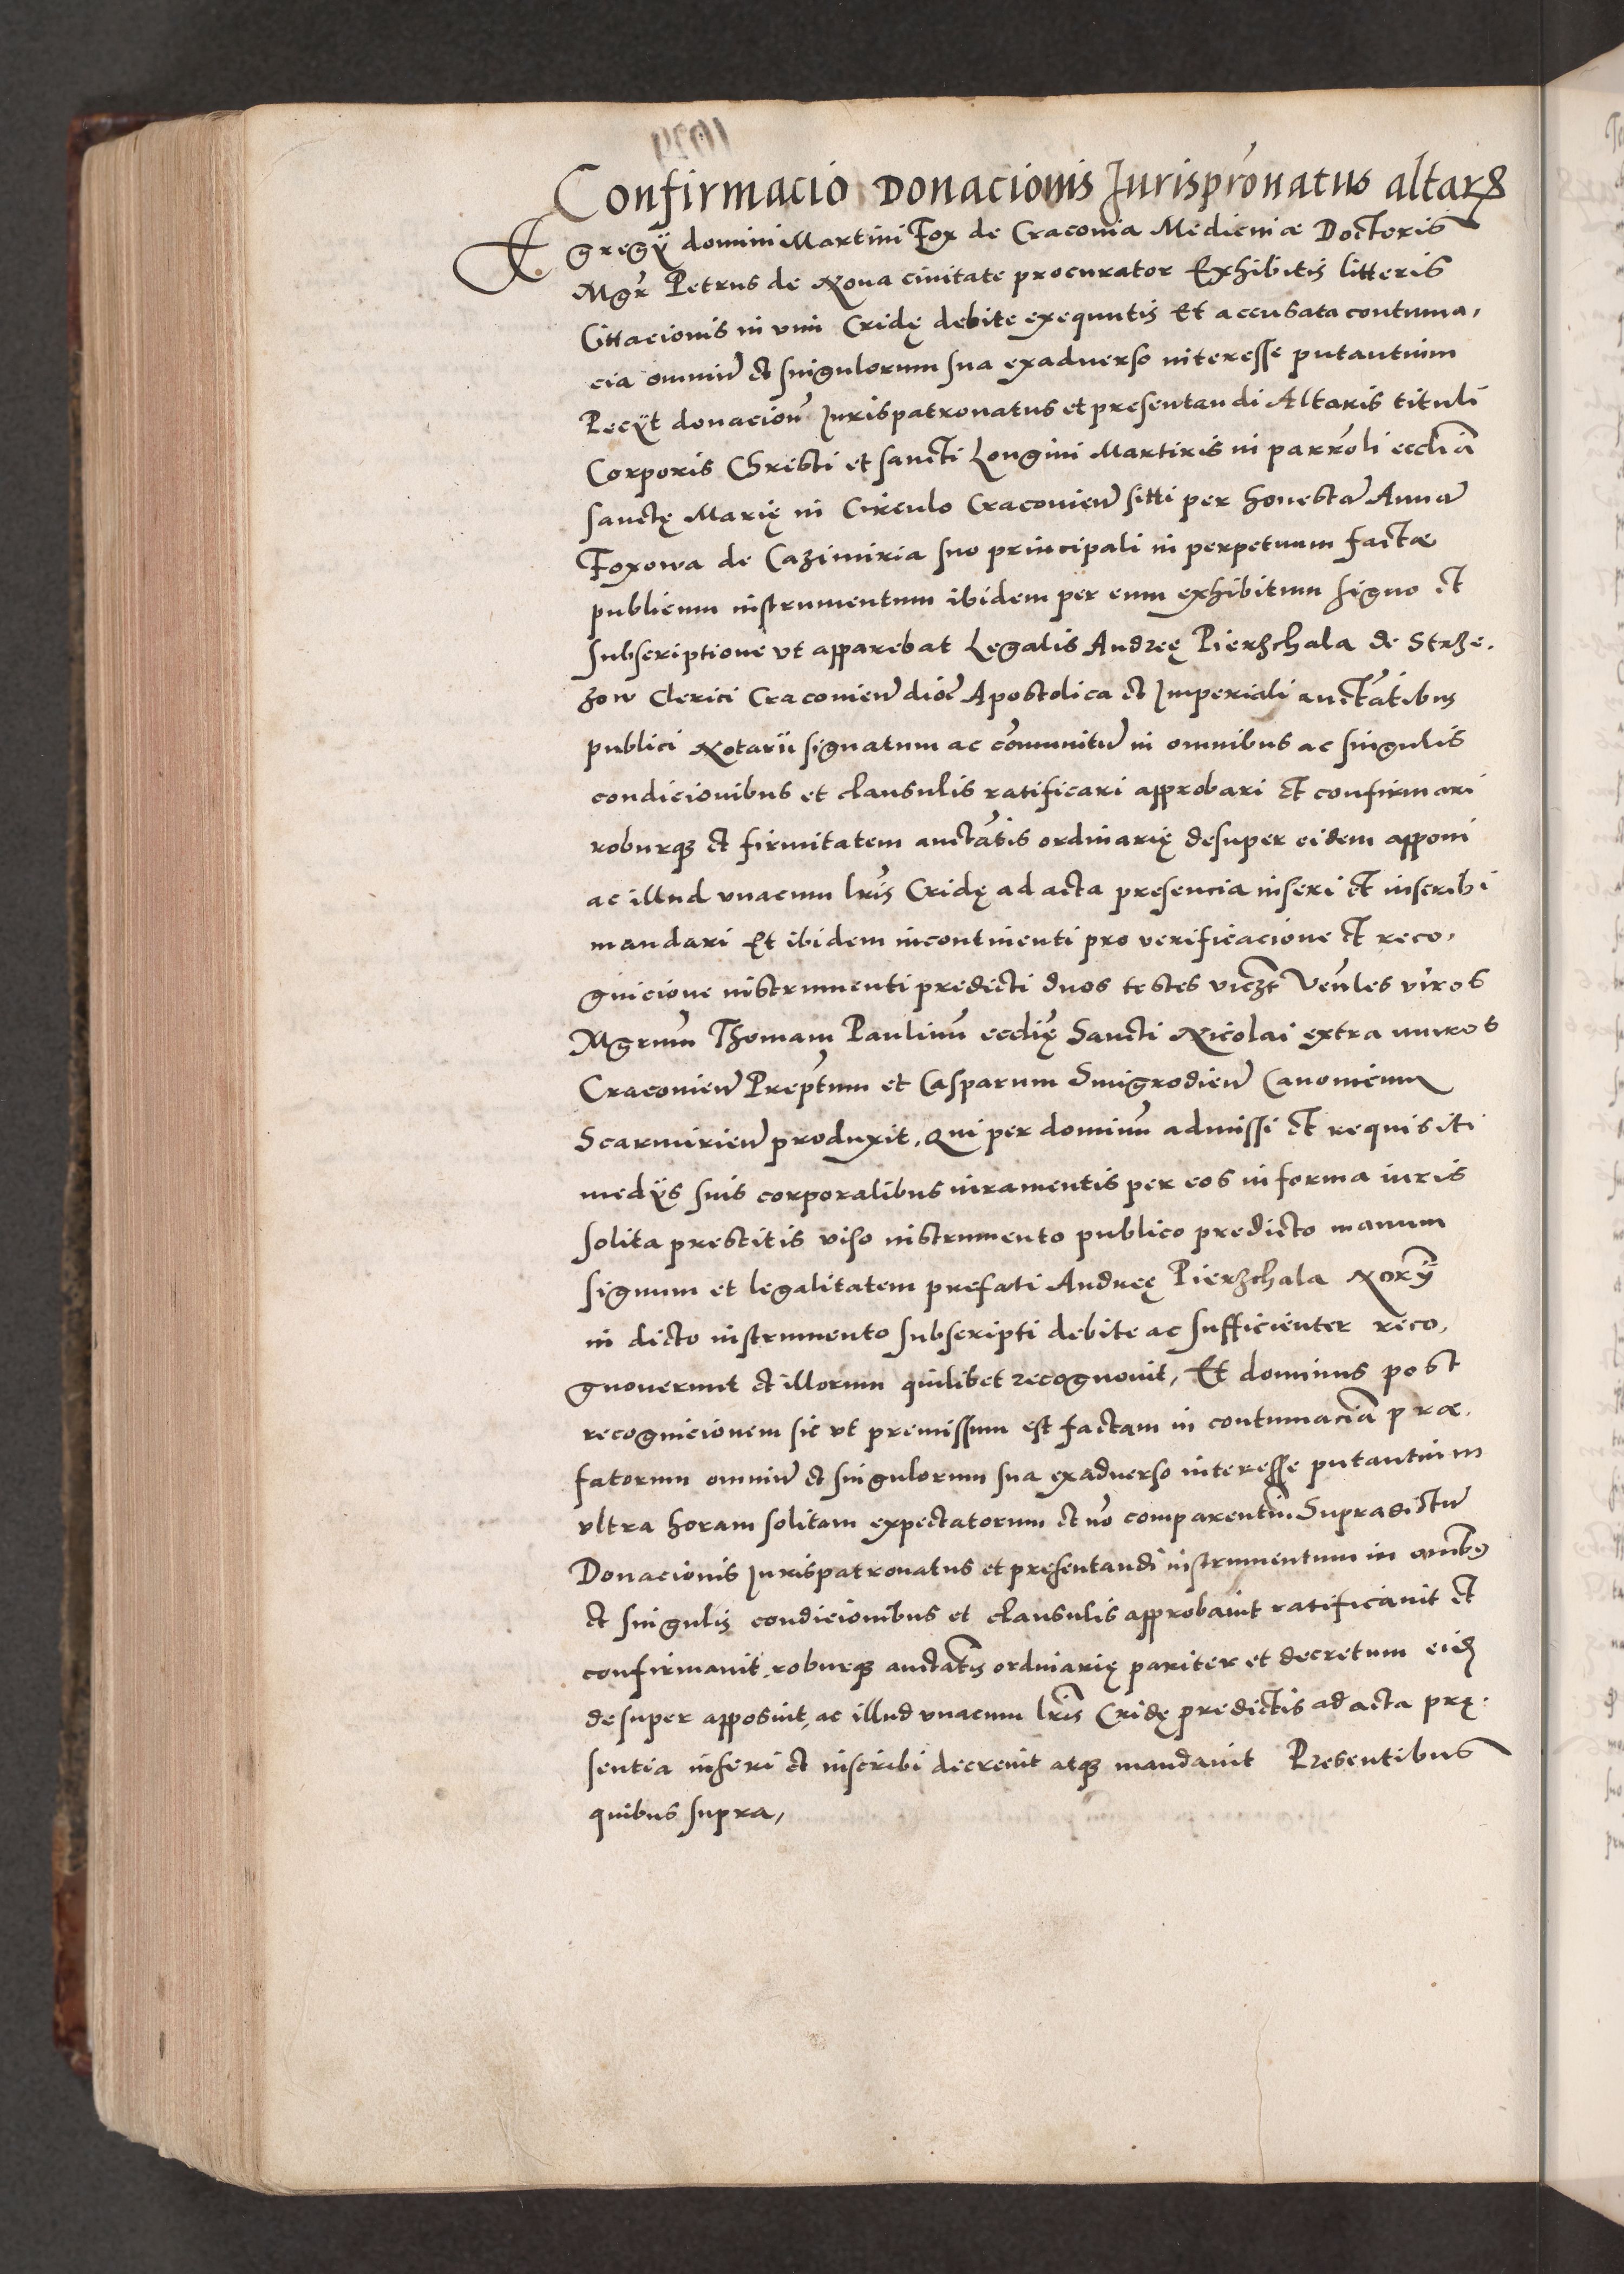 Confirmacio Donacionis Jurisprōnatus altarꝫ
Egregÿ domini Martini Fox de Craconia Medicinæ Doctoris
Mgr̄ Petrus de Noua ciuitate procurator Exhibitis litteris
Cittacionis in vim Cridę debite exequutis Et accusata contuma,
cia omniū et singulorum sua exaduerso interesse putantium
Pecÿt donacionē Jurispatronatus et presentandi Altaris tituli
Corporis Christi et sancti Longini Martiris in parrōli eccliā
sanctę Marię in Circulo Cracouieñ sitti per honestā Annā
Foxowa de Cazimiria suo principali in perpetuum factæ
publicum instrumentum ibidem per eum exhibitum signo et
subscriptione vt apparebat Legalis Andreę Pierzchala de Strze.
zow Clerici Cracouieñ dioc̄ Apostolica et Imperiali auctātibus
publici Notarii signatum ac cōmunitū in omnibus ac singulis
condicionibus et clausulis ratificari approbari et confirmari
roburqꝫ et firmitatem auctātis ordinarię desuper eidem apponi
ac illud vnacum lr̄is Cridę ad acta presencia inseri et inscribi
mandari Et ibidem incontinenti pro verificacione et reco,
gnicione instrumenti predicti duos testes viczt Ven̄les viros
Mgrum̄ Thomam Paulinū ecclię Sancti Nicolai extra muros
Cracouieñ Prep̄tum et Casparum Smigrodieñ Canonicum
Scarmirieñ produxit, Qui per dominū admissi et requisiti
medÿs suis corporalibus iuramentis per eos in forma iuris
solita prestitis viso instrumento publico predicto manum
signum et legalitatem prefati Andreę Pierzchala Norÿ
in dicto instrumento subscripti debite ac sufficienter reco,
gnouerunt et illorum quilibet recognouit, Et dominus post
recognicionem sic vt premissum est factam in contumaciā præ,
fatorum omniū et singulorum sua exaduerso interesse putantium
vltra horam solitam expectatorum et nō comparentiū Supradictū
Donacionis Jurispatronatus et presentandi instrumentum in omībꝫ
et singulis condicionibus et clausulis approbauit ratificauit et
confirmauit roburqꝫ auctātis ordinarię pariter et decretum eid̄
desuper apposuit, ac illud vnacum lr̄is Cridę predictis ad acta prę.
sentia inseri et inscribi decreuit atqꝫ mandauit Presentibus
quibus supra,